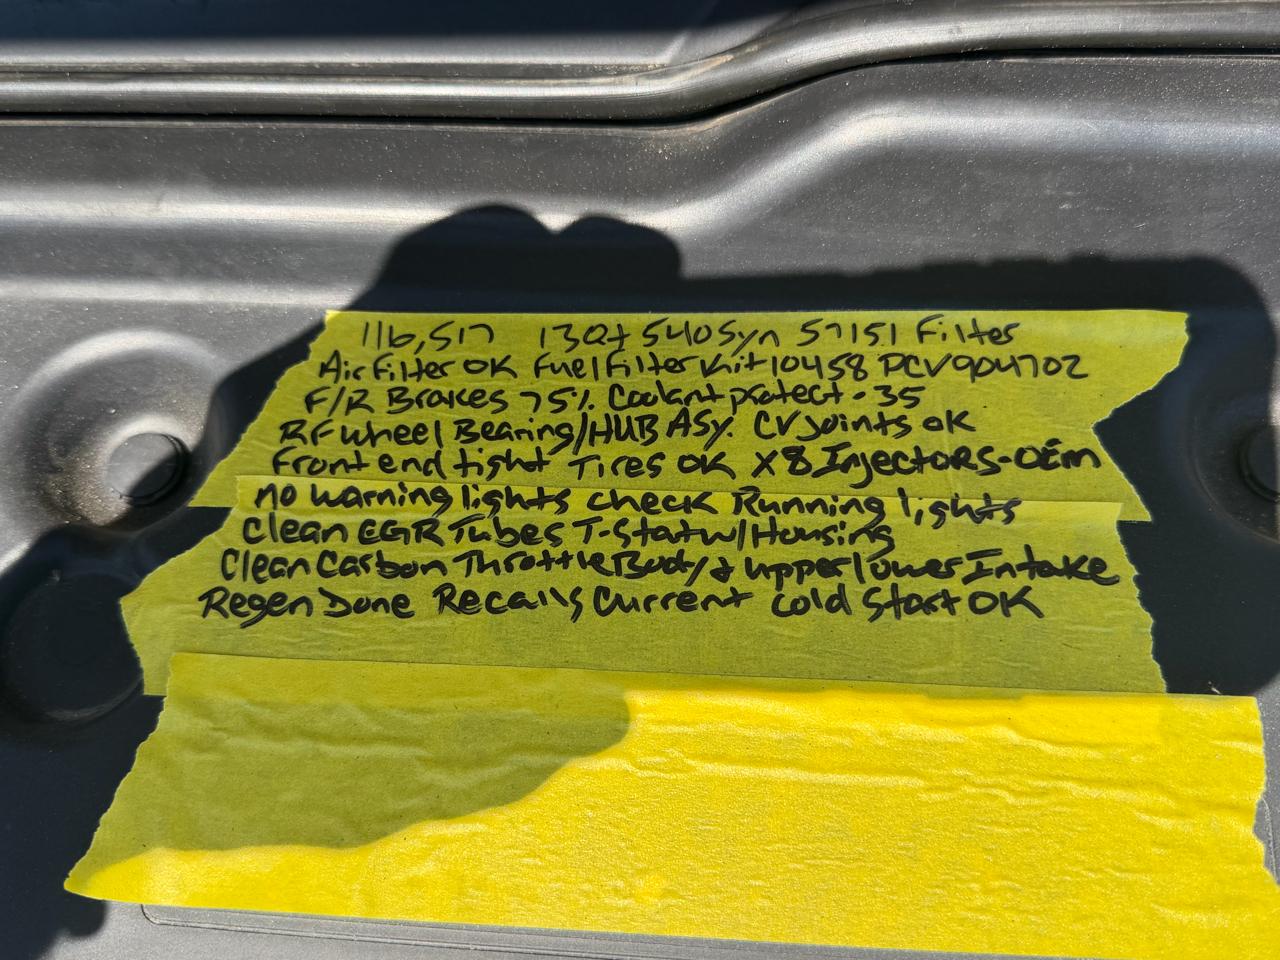 116,517 13Qt 540 Syn 57151 Filter
Air Filter OK Fuel Filter Kit 10458 PCV904702
F/R Brakes 75% Coolant protect -35
RF Wheel Bearing/HUB ASy. CV Joints OK
Front end tight Tires OK X8 Injectors-OEm
no warning lights check Running lights
Clean EGR Tubes T-Stat w/Housing
Clean Carbon Throttle Body/& upper lower Intake
Regen Done Recalls Current Cold Start OK